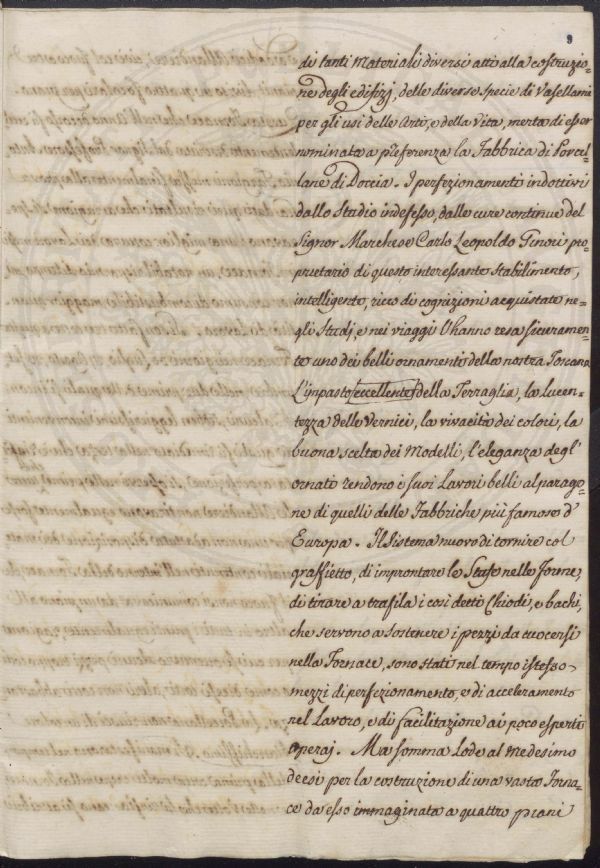 9
di tanti Materiali diversi atti alla costruzio=
ne degli edifizj, delle diverse specie di Vasellami
per gli usi delle Arti, e della Vita, merta di esser
nominata a preferenza la Fabbrica di Porcel=
lane di Doccia. I perfezionamenti indottivi
dallo Studio indefesso, dalle cure continue del
Signor Marchese Carlo Leopoldo Ginori pro=
prietario di questo interessante stabilimento,
intelligente, ricco di cognizioni acquistate ne=
gli Studj, e nei viaggi l'hanno resa sicuramen=
te uno dei belli ornamenti della nostra Toscana
L'impasto eccellente della Terraglia, la lucen=
tezza delle Vernici, la vivacità dei colori, la
buona scelta dei Modelli, l'eleganza degl'
ornati rendono i suoi Lavori belli al parago=
ne di quelli delle Fabbriche più famose d'
Europa. Il Sistema nuovo di tornire col
graffietto, di improntare le Stufe nelle forme,
di tirare a trafila i così detti Chiodi, e bachi,
che servono a sostenere i pezzi da cuocersi
nella Fornace, sono stati nel tempo istesso
mezzi di perfezionamento, e di acceleramento
nel Lavoro, e di facilitazione ai poco esperti
operaj. Ma somma Lode al Medesimo
deesi per la costruzione di una vasta Forna=
ce da esso immaginata a quattro piani